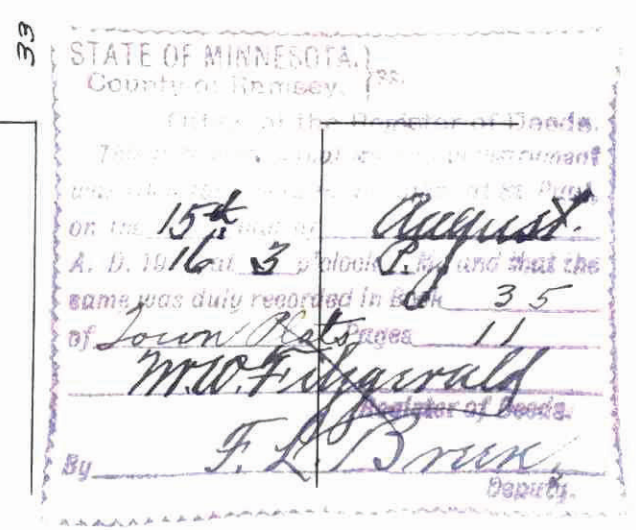 33
STATE OF MINNESOTA. } ss.
County of Ramsey.
Office of the Register of Deeds.
This is to that instrument
was at St. Paul,
on the 15th day of August.
A. D. 1916 at 3 o'clock P. M., and that the
same was duly recorded in Book 35
of Town Plats Pages 11
M.W. Fitzgerald
Register of Deeds.
By F. L. Breen,
Deputy.